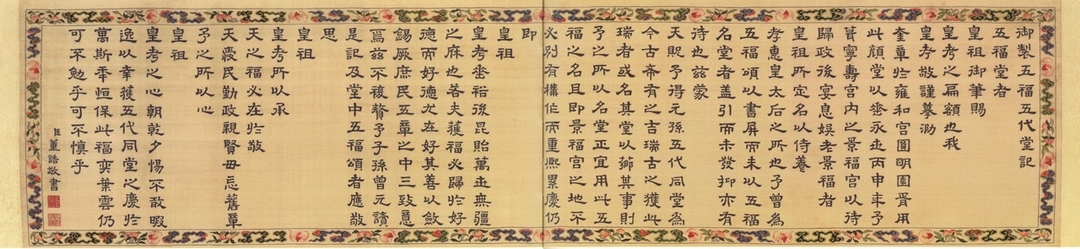 御製五福五代堂記
五福堂者
皇祖御筆賜
皇考之扁額也我
皇考敬謹摹泐
奎章於雍和宮圓明園胥用
此顏堂以垂永世丙申年予
葺寧壽宮內之景福宮以待
歸政後宴息娛老景福者
皇祖所定名以侍養
孝惠皇太后之所也予曾為
五福頌以書屏而未以五福
名堂者蓋引而未發抑亦有
待也茲蒙
天貺予得元孫五代同堂為
今古希有之吉瑞古之獲此
瑞者或名其堂以鄉其事則
予之所以名堂正宜用此五
福之名且即景福宮之地不
必別有構作而重熙累慶仍
即
皇祖
皇考垂裕後昆貽萬世無疆
之庥也若夫獲福必歸於好
德而好德尤在好其善以斂
錫厥庶民五章之中三致意
焉茲不複贅予子孫曾元讀
是記及堂中五福頌者應敬
思
皇祖
皇考所以承
天之福必在於敬
天愛民勤政親賢毋忘舊章
予之所以心
皇祖
皇考之心朝乾夕惕不敢暇
逸以幸獲五代同堂之慶於
萬斯年恒保此福奕葉雲仍
可不勉乎可不慎乎
臣董誥敬書